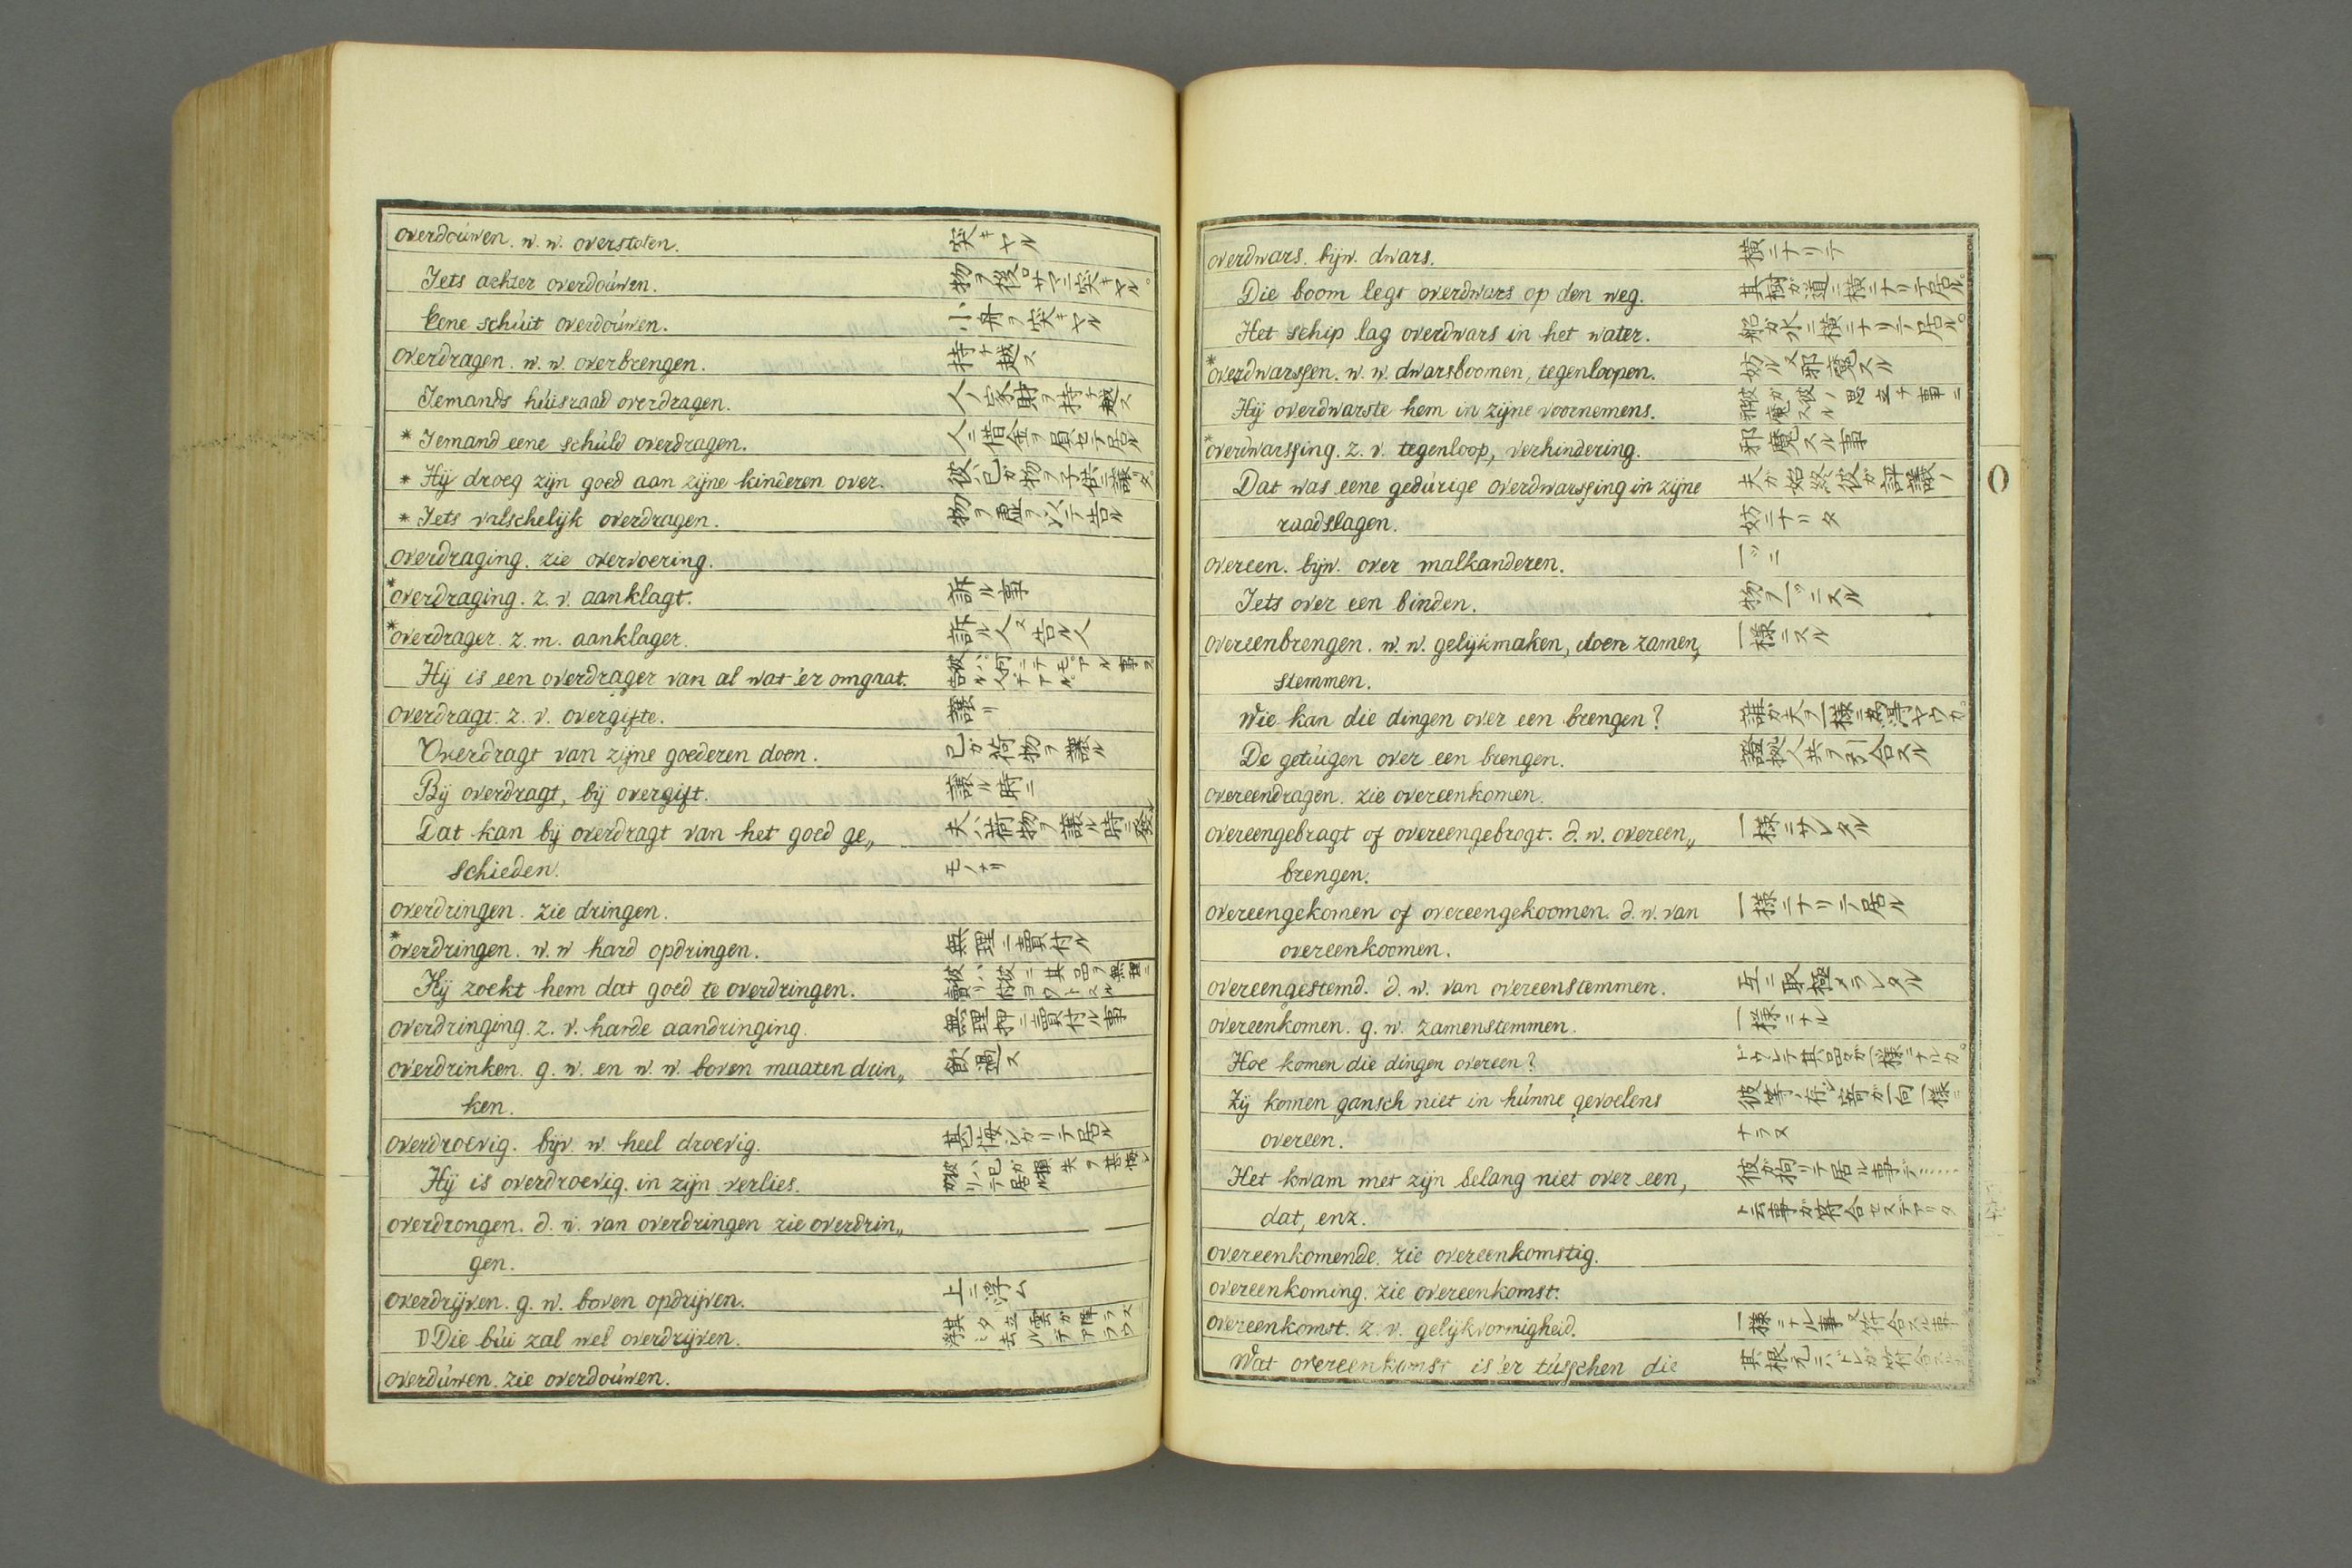 overdoúwen. w. w. overstoten. 突キヤル
Iets achter overdoúwen. 物ヲ後ロサマニ突キヤル。
Eene schúit overdoúwen. 小舟ヲ突キヤル
overdragen. w. w. overbrengen. 持チ越ス
Iemands húisraad overdragen. 人ノ家財ヲ持チ越ス
* Iemand eene schúld overdragen. 人ニ借金ヲ負セテ居ル
* Hij droeg zijn goed aan zijne kinderen over. 彼ハ己ガ物ヲ子供ニ譲リタ。
* Iets valschelijk overdragen. 物ヲ虚ヲ以テ告ル
overdraging. zie overvoering.
*overdraging. z. v. aanklagt. 訴ル事
*overdrager. z. m. aanklager. 訴ル人又告ル人
Hij is een overdrager van al wat 'er omgaat.
overdragt. z. v. overgifte. 譲リ
Overdragt van zijne goederen doen. 己ガ荷物ヲ譲ル
Bij overdragt, bij overgift. 譲ル時ニ
Dat kan bij overdragt van het goed ge„ 夫ハ荷物ヲ譲ル時ニ發ル
schieden. モノナリ
overdringen. zie dringen.
*overdringen. w. w hard opdringen. 無理ニ賣付ル
Hij zoekt hem dat goed te overdringen. 彼ハ彼ニ其品ヲ無理ニ賣リ付ヨウトスル
overdringing. z. v. harde aandringing. 無理押ニ賣付ル事
overdrinken. g. w. en w. w. boven maaten drin„ 飲過ス
ken.
overdroevig. bijv. w. heel droevig. 甚悔シガリテ居ル
Hij is overdroevig in zijn verlies.
overdrongen. d. w. van overdringen zie overdrin„
gen.
overdrijven. g. w. boven opdrijven. 上ニ浮ム
Die búi zal wel overdrijven.
overdúwen. zie overdoúwen.
overdwars. bijw. dwars. 横ニナリテ
Die boom legt overdwars op den weg. 其樹ガ道ニ横ニナリテ居ル。
Het schip lag overdwars in het water. 船ガ水ニ横ニナリテ居ル。
*overdwarssen. w. w. dwarsboomen, tegenloopen. 妨ル又邪魔スル
Hij overdwarste hem in zijne voornemens. 彼ガ彼ノ思立チ事ニ邪魔スル
*overdwarssing. z. v. tegenloop, verhindering. 邪魔スル事
Dat was eene gedúrige overdwarssing in zijne 夫ガ始終彼ガ評議ノ
raadslagen. 妨ニナリタ
O
overeen. bijw. over malkanderen. 一ツニ
Iets over een binden. 物ヲ一ツニスル
overeenbrengen. w. w. gelijkmaken, doen zamen„ 一様ニスル
stemmen.
Wie kan die dingen over een brengen? 誰ガ夫ヲ一様ニ為得ヤウカ。
De getúigen over een brengen. 證拠人共ヲ引合スル
overeendragen. zie overeenkomen.
overeengebragt of overeengebrogt. d. w. overeen„ 一様ニサレタル
brengen.
overeengekomen of overeengekoomen. d. w. van 一様ニナリテ居ル
overeenkoomen.
overeengestemd. d. w. van overeenstemmen. 互ニ取極メラレタル
overeenkomen. g. w. zamenstemmen. 一様ニナル
Hoe komen die dingen overeen? ドウシテ其品々ガ一様ニナルカ。
Zij komen gansch niet in húnne gevoelens
overeen. ナラヌ
Het kwam met zijn belang niet over een,
dat, enz. ト云事ガ符合セズデアリタ
overeenkomende. zie overeenkomstig.
overeenkoming. zie overeenkomst.
overeenkomst. z. v. gelijkvormigheid. 一様ニナル事又符合スル事
Wat overeenkomst is 'er tússchen die